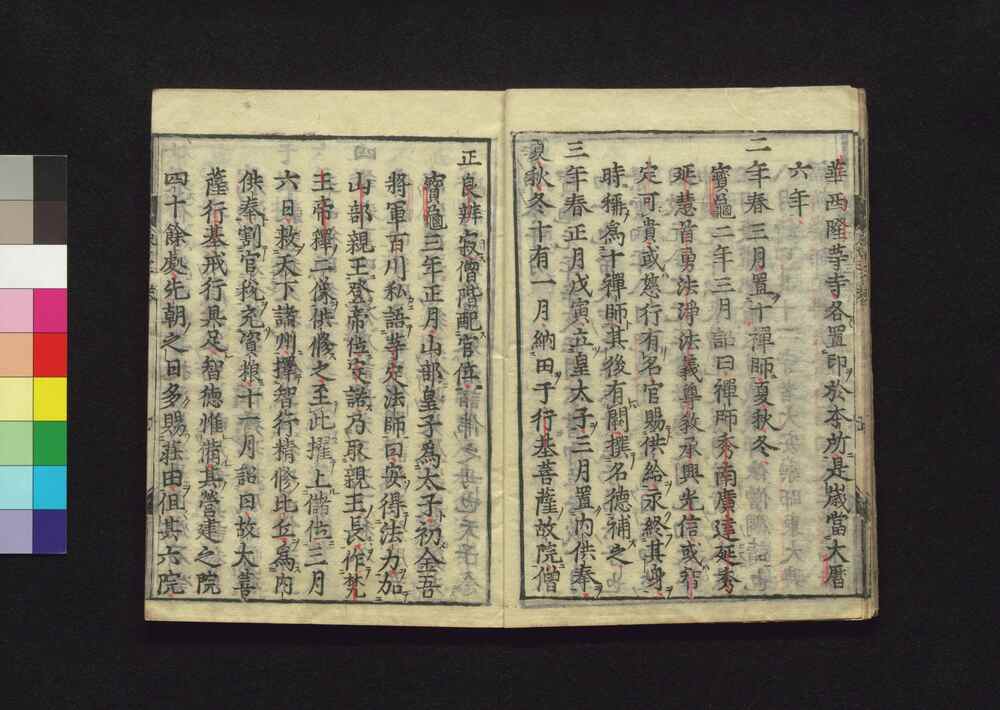 華西隆等寺各置印於本所是歲當大曆
六年
二年春三月置十禪師夏秋冬
寶龜二年三月詔曰禪師秀南廣達延秀
延慧首勇法淨法義尊敬承興光信或智
定可貴或慈行有名官賜供給永終其身
時稱爲十禪師其後有闕撰名德補之
三年春正月戊寅立皇太子三月置内供奉
夏秋冬十有一月納田于行基菩薩故院僧
正良辨寂僧階配官位
寶龜三年正月山部皇子爲太子初金吾
將軍百川私語等定法師曰安得法力加
山部親王登帝位定諾乃取親王長作梵
王帝釋二像供修之至此擢上儲位三月
六日敕天下諸州擇智行精修比丘爲内
供奉割官稅充資粮十一月詔曰故大菩
薩行基戒行具足智德惟備其營建之院
四十餘處先朝之日多賜莊田但其六院